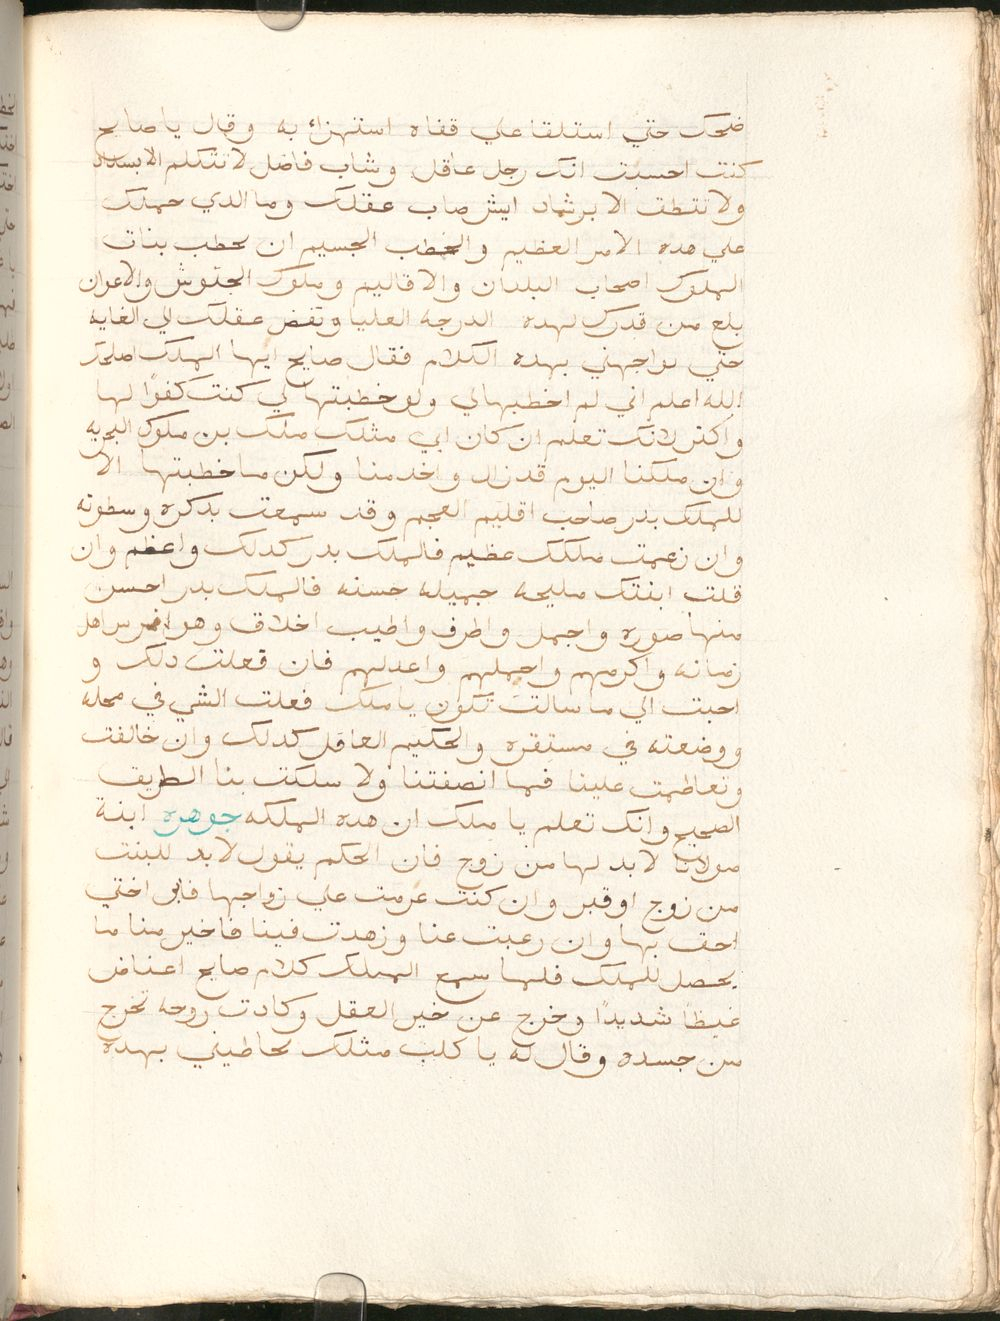 ضحك حتي استلقا علي قفاه استهزائ به وقال يا صايح
كنت احسبت انك رجل عاقل وشاب فاضل لا تتكلم الا بسداد
ولا تنطق الا برشاد ايش صاب عقلك وما الدي حملك
علي هده الامر العظيم والخطب الجسيم ان تحطب بنات
الملوك اصحاب البلدان والاقاليم وملوك الجئوش والاعوان
بلع من قدرك لهده الدرجه العليا ونقض عقلك لي الغايه
حتي تواجهني بهده الكلام فقال صايح ايها الملك اصلحك
الله اعلم اني لم اخطبها لي ولو خطبتها لي كنت كفوًا لها
واكتر لانك تعلم ان كان ابي مثلك ملك بن ملوك البحريه
وان ملكنا اليوم قد زال واخد منا ولكن ما خطبتها الا
للملك بدر صاحب اقليم العجم وقد سمعت بدكره وسطوته
وان زعمت ملكك عظيم فالملك بدر كدلك واعظم وان
قلت ابنتك مليحه جميله حسنه فالملك بدر احسن
منها صوره واجمل واظرف واطيب اخلاق وهو افرس اهل
زمانه واكرمهم واجملهم واعدلهم فان فعلت دلك و
اجبت الي ما سالت تكون يا ملك فعلت الشي في محله
ووضعته في مستقره والحكيم العاقل كدلك وان خالفت
وتعاظمت علينا فما انصفتنا ولا سلكت بنا الطريق
الصحيح وانك تعلم يا ملك ان هده الملكه جوهره ابنة
مولانا لا بد لها من زوج فان الحكم يقول لا بد للبنت
من زوج او قبر وان كنت عزمت علي زواجها فابن اختي
احق بها وان رعبت عنا وزهدت فينا فاخير منا ما
يحصل للملك فلما سمع الملك كلام صايح اعتاض
غيظًا شديدًا وخرج عن خير العقل وكادت روحه تخرج
من جسده وقال له يا كلب مثلك يحاطبني بهده